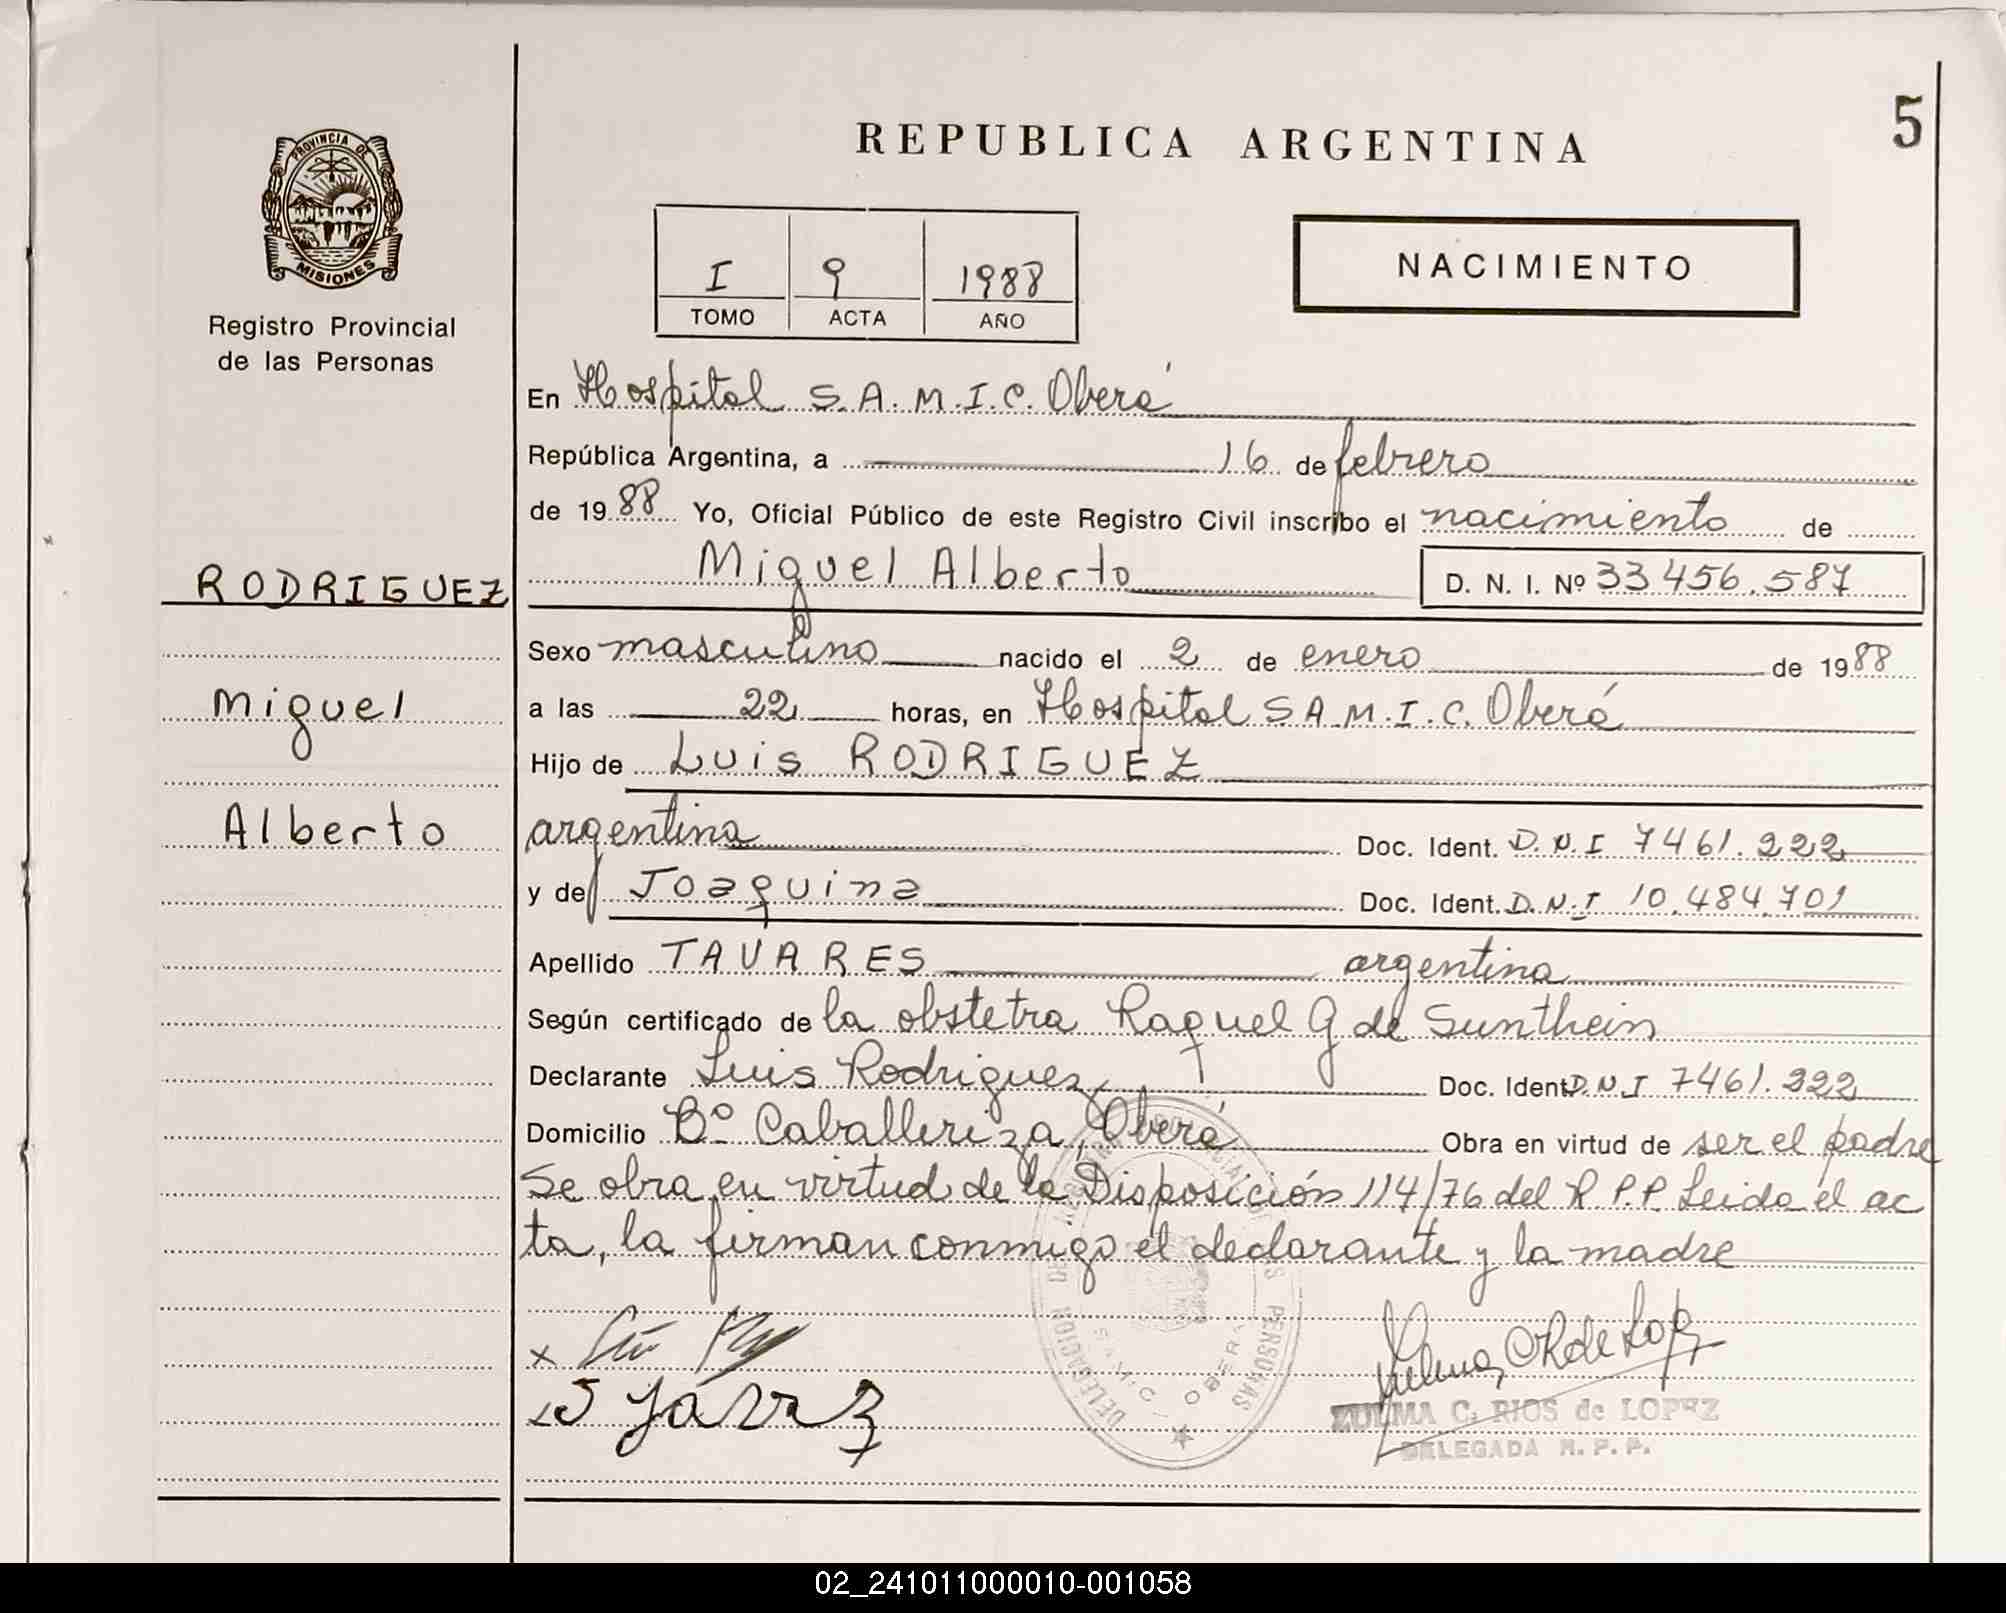 REPUBLICA ARGENTINA
5
PROVINCIA DE
MISIONES
Registro Provincial
de las Personas
I 9 1988
TOMO ACTA AÑO
NACIMIENTO
En Hospital S.A.M.I.C. Oberá
República Argentina, a 16 de febrero
de 1988 Yo, Oficial Público de este Registro Civil inscribo el nacimiento de
Miguel Alberto D. N. I. Nº 33 456.587
RODRIGUEZ
Miguel
Alberto
Sexo masculino nacido el 2 de enero de 1988
a las 22 horas, en Hospital S.A.M.I.C. Oberá
Hijo de Luis RODRIGUEZ
argentina Doc. Ident. D.N.I 7461.222
y de Joaquina Doc. Ident. D.N.I 10.484.701
Apellido TAVARES argentina
Según certificado de la obstetra Raquel G de Sunthein
Declarante Luis Rodriguez Doc. Ident. D.N.I 7461.222
Domicilio Bº Caballeriza, Oberá Obra en virtud de ser el padre
Se obra en virtud de la Disposición 114/76 del R.P.P. Leida el ac
ta, la firman conmigo el declarante y la madre
DELEGACION DE REGISTRO PROVINCIAL DE LAS PERSONAS
S.A.M.I.C. - OBERA
ZULMA C. RIOS de LOPEZ
DELEGADA R. P. P.
02_241011000010-001058